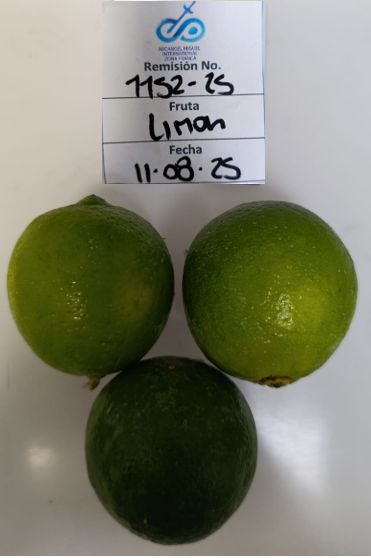 ARCANGEL MIGUEL
INTERNATIONAL
ZONA FRANCA
Remisión No.
1152-25
Fruta
Limon
Fecha
11.08.25